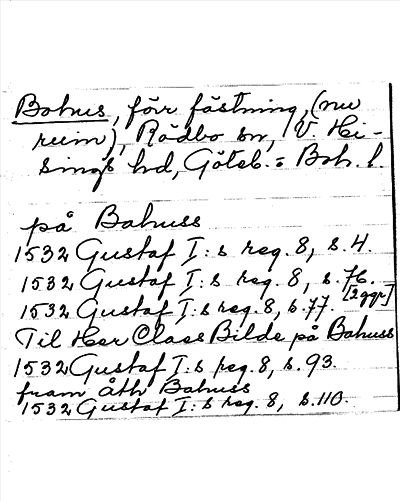 Bohus, förr fästning, (nu
ruin), Rödbo sn, V. Hi-
sings hd, Göteb. = Boh. l.
på Bahuss
1532 Gustaf I:s reg. 8, s. 4.
1532 Gustaf I:s reg. 8, s. 76.
1532 Gustaf I:s reg. 8, s. 77. [2 ggr]
Til Her Claes Bilde på Bahuss
1532 Gustaf I:s reg. 8, s. 93.
fram åth Bahuss
1532 Gustaf I:s reg. 8, s. 110.